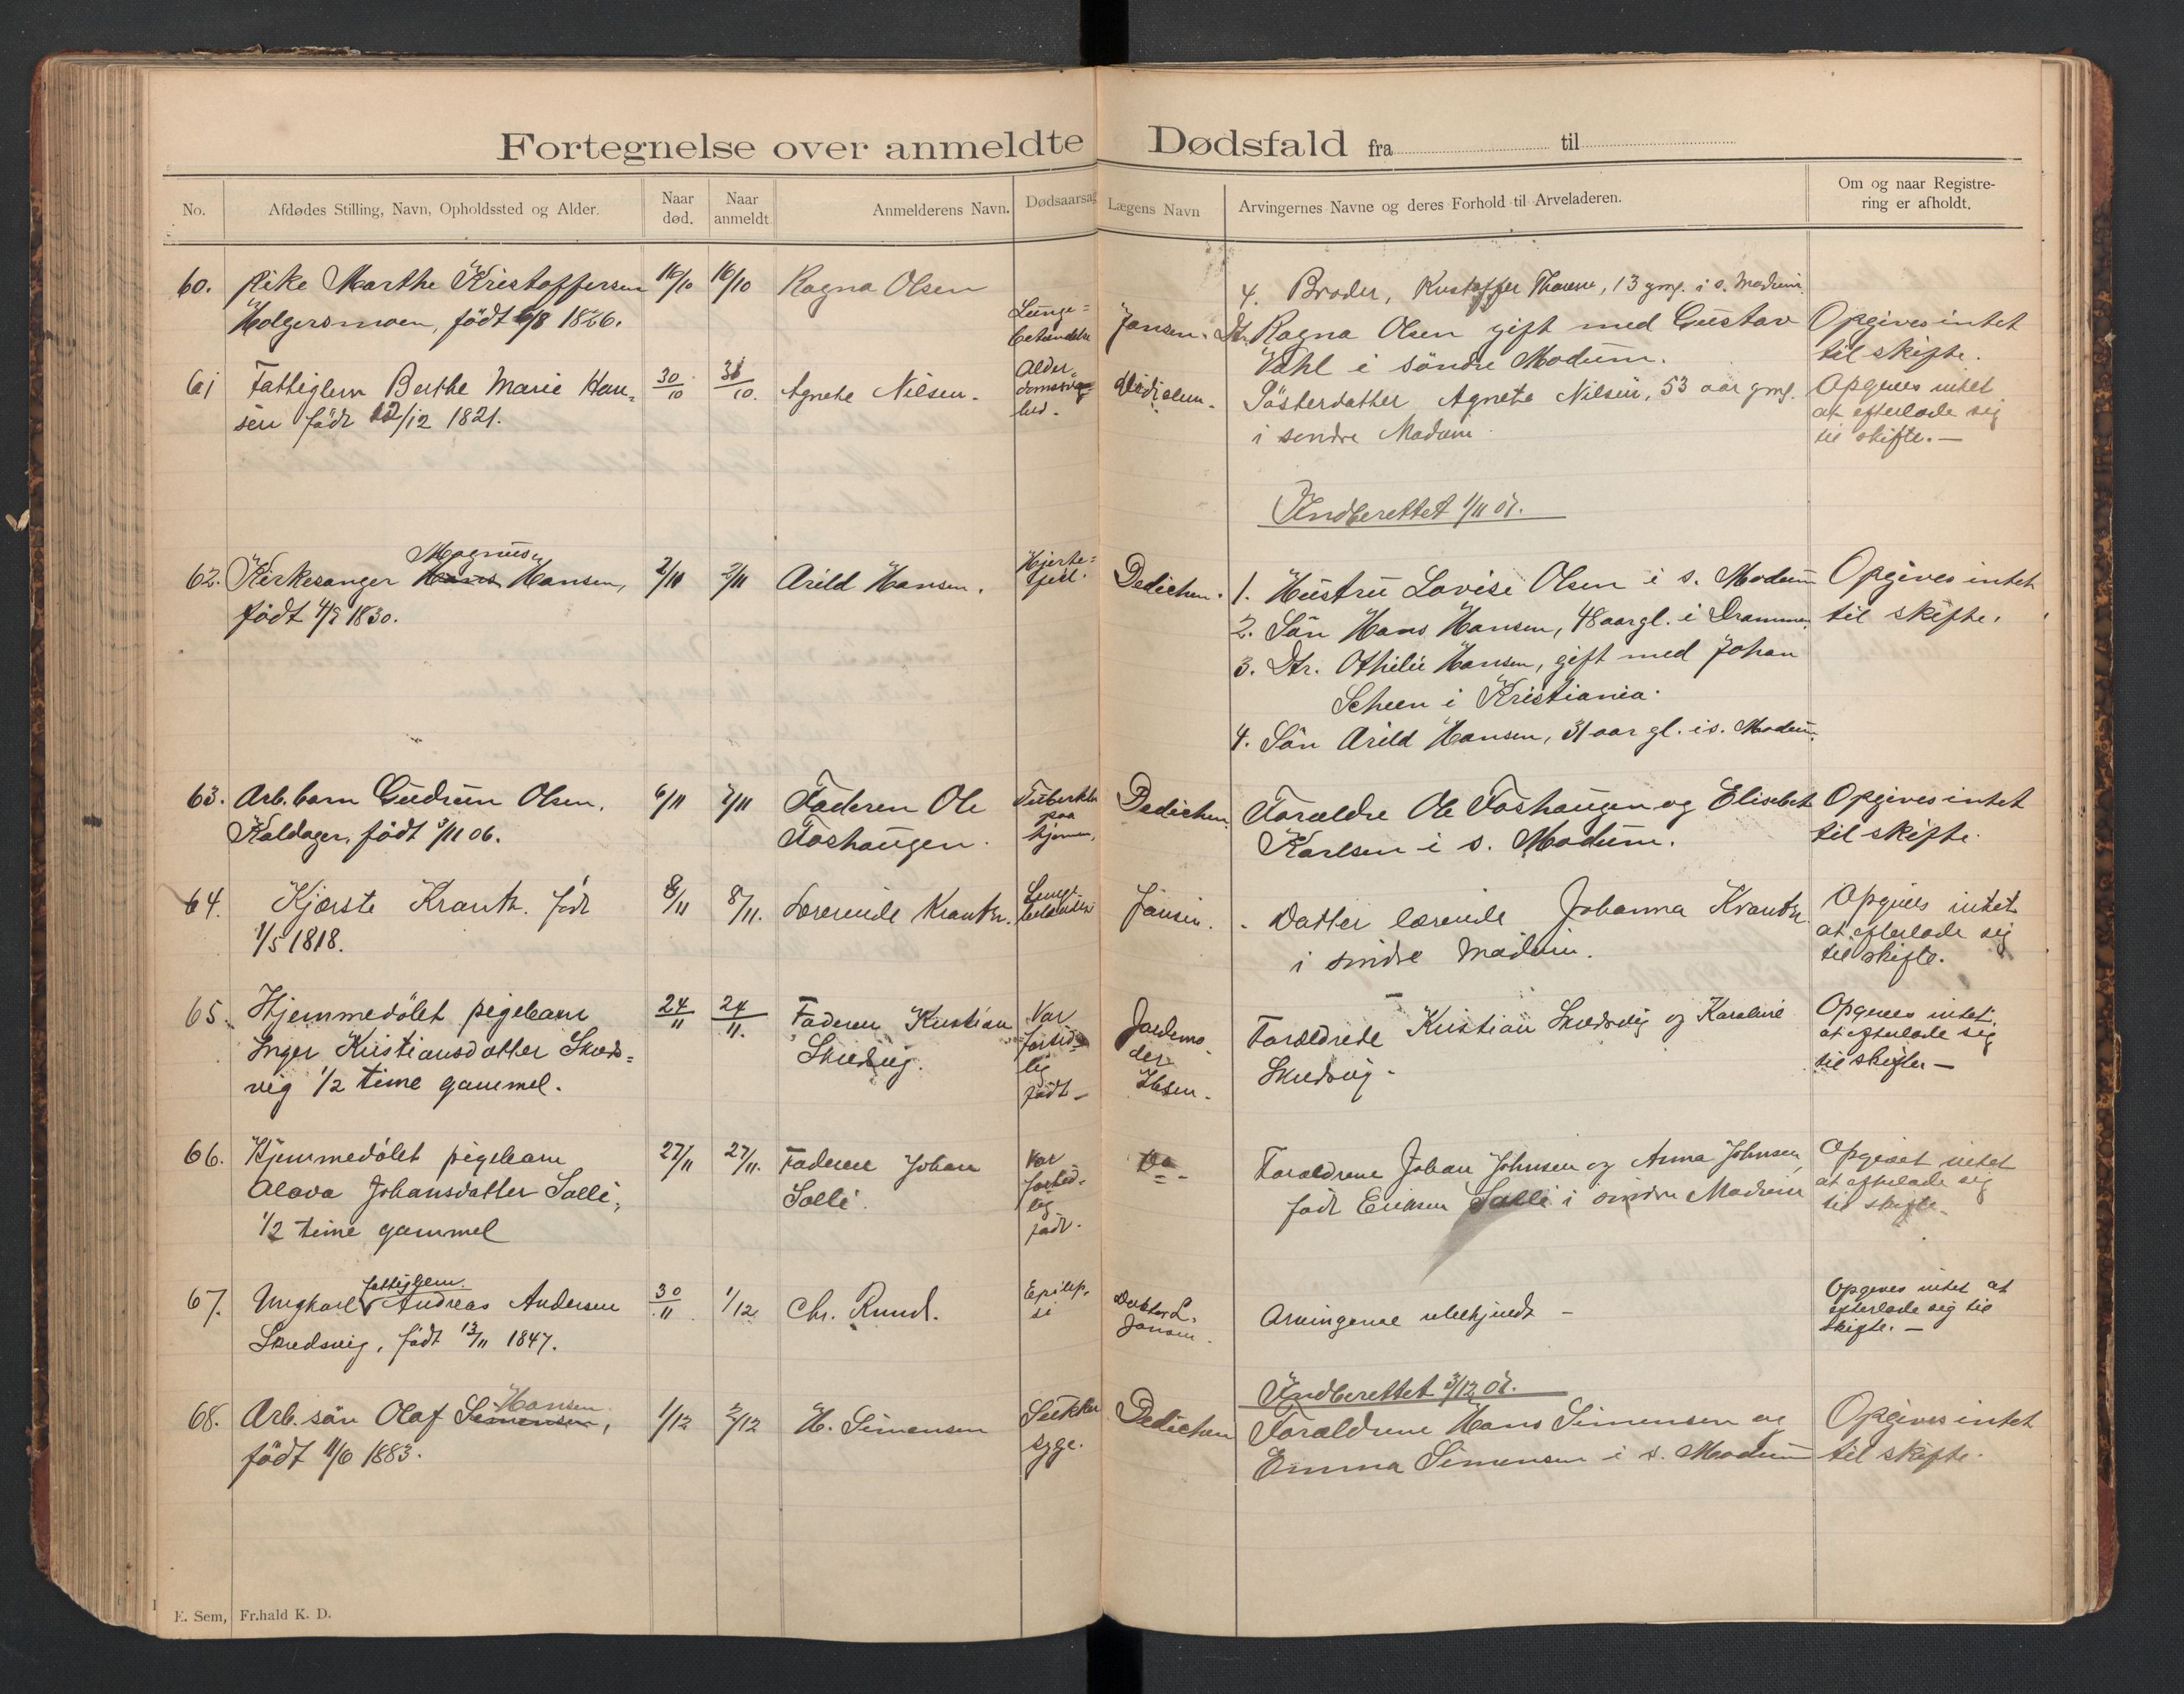 Fortegnelse over anmeldte Dødsfald fra til
No.
Afdødes Stilling, Navn, Opholdssted og Alder.
Naar død.
Naar anmeldt
Anmelderens Navn.
Dødsaarsag
Lægens Navn
Arvingernes Navne og deres Forhold til Arveladeren.
Om og naar Registre-
ring er afholdt.
4. Broder, Kristoffer Thorene, 13 gml. i s. Modum.
60. Pike Marthe Kristoffersen 16/10 16/10 Ragna Olsen
Holgersmoen, født 6/8 1826.
Lunge=
betændelse
Jansen.
Dtr. Ragna Olsen gift med Gustav
Vahl i söndre Modum.
Opgives intet
til skifte.
61 Fattiglem Berthe Marie Han-
sen født 12/12 1821.
30/10 31/10. Agnete Nilsen.
Alder
domssvag
hed.
Dedichen.
Søsterdatter Agnete Nilsen, 53 aar gml.
i søndre Modum.
Opgives intet
at efterlade sig
til skifte. —
Indberettet 1/11 07.
Magnus
62. Kirkesanger Hans Hansen,
født 4/8 1830.
2/11 2/11 Arild Hansen.
Hjerte=
feil.
Dedichen.
1. Hustru Lovise Olsen i s. Modum
2. Sön Hans Hansen, 48 aar gl. i Drammen.
3. Dtr. Othilie Hansen, gift med Johan
Scheen i Kristiania.
4. Sön Arild Hansen, 31 aar gl. i s. Modum.
Opgives intet
til skifte.
63. Arb. barn Gudrun Olsen.
Kaldager, født 3/11 06.
6/11 7/11 Faderen Ole
Foshaugen.
Tuberkler
paa
hjernen.
Dedichen.
Forældre Ole Foshaugen og Elisabet
Karlsen i s. Modum.
Opgives intet
til skifte.
64. Kjerste Krantz. født
1/5 1818.
8/11 8/11. Lærerinde Krantz.
Jansen.
Datter lærerinde Johanna Krantz
i søndre Modum.
Opgives intet
at efterlade sig
til skifte.
65. Hjemmedøbt pigebarn
Inger Kristiansdatter Skreds=
vig 1/2 time gammel.
24/11 24/11. Faderen Kristian
Skredsvig.
Var
fortid-
lig
født —
Jordemo-
der
Ibsen.
Forældrede Kristian Skredsvig og Karoline
Skredsvig.
Opgives intet
at efterlade sig
til skifte —
66. Hjemmedøbt pigebarn
Alova Johansdatter Solli,
1/2 time gammel
27/11 27/11. Faderen Johan
Solli.
Var
fortid-
lig
født.
Do
Forældrene Johan Johnsen og Anna Johnsen,
født Eriksen Solli i søndre Modum
Opgives intet
at efterlade sig
til skifte.
fattiglem.
67. Ungkarl Andreas Andersen
Skredsvig, født 13/11 1847.
30/11 1/12 Chr. Ruud.
Epilep-
si
Doktor L.
Jansen.
Arvingerne ubekjendt —
Opgives intet at
efterlade sig til
skifte. —
Indberettet 3/12 07.
Hansen
68. Arb. sön Olaf Simensen,
født 11/6 1883.
1/12 2/12 H. Simensen
Sukker
syge.
Dedichen
Forældrene Hans Simensen og
Emma Simensen i s. Modum
Opgives intet
til skifte.
E. Sem, Fr.hald K. D.